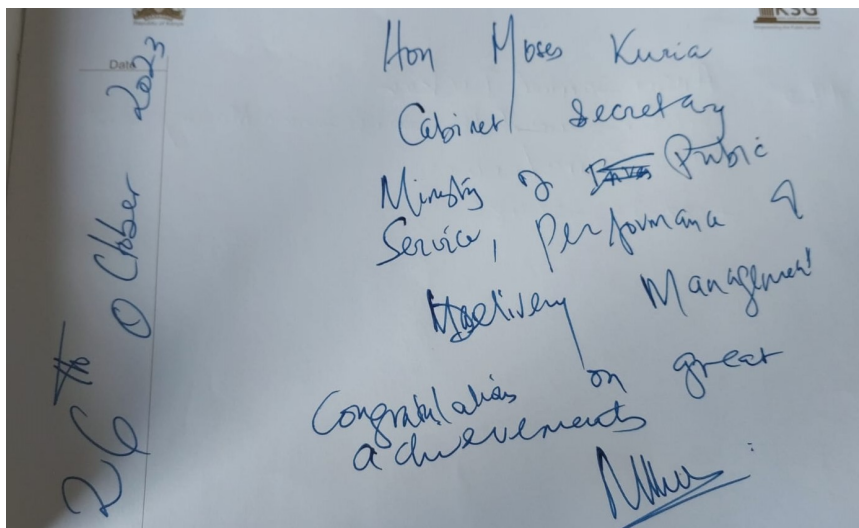 Republic of Kenya
KSG
Date
26th October 2023
Hon Moses Kuria
Cabinet Secretary
Ministry of Public
Service, Performance &
Delivery Management
Congratulations on great
achievements